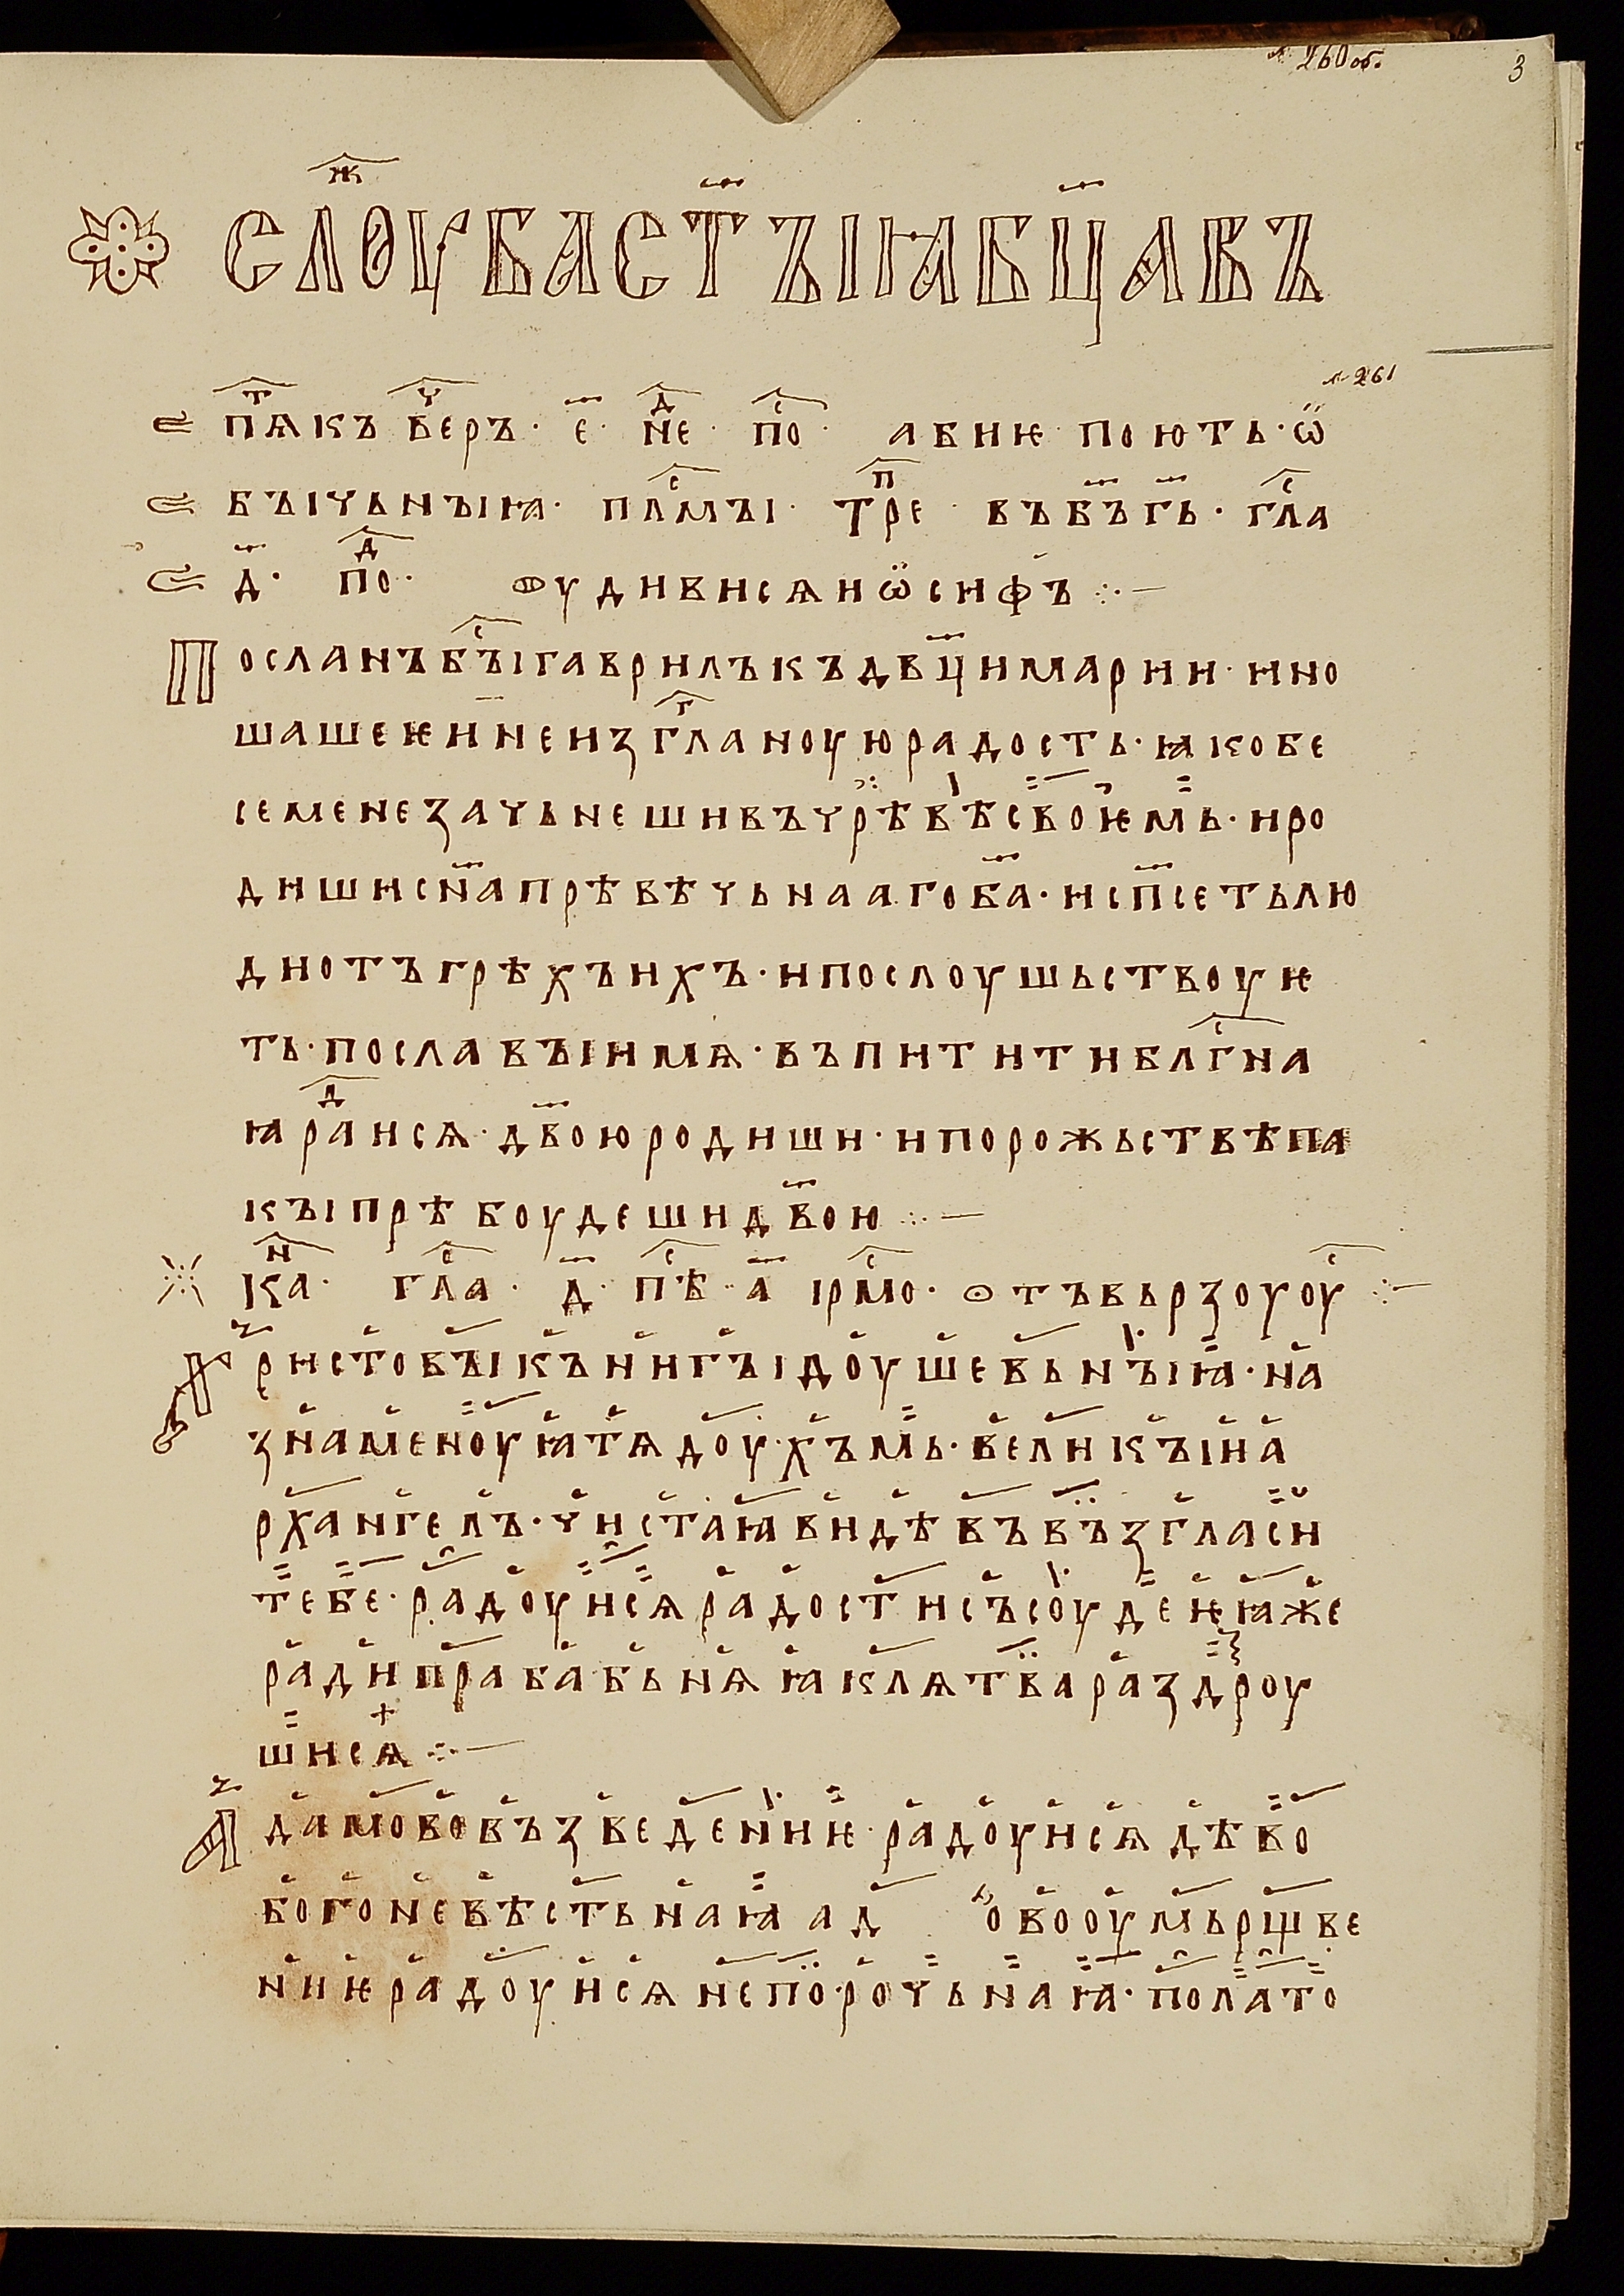 л. 260 об.
3
СЛОУⷤБАСТ҃ЪІꙖБЦ҃АВЪ
л. 261
пѧⷮкъ веⷱръ · е҃ · неⷣ · поⷭ · абиѥ · поють · ѡ̈
бъічьнъіꙗ · пⷭлмъі · трⷫе · въб҃ъг҃ь · глⷭа
д҃ · поⷣ · ѹдивисѧиѡ̈сифъ ჻—
Посланъбъіⷭгаврилъкъдвц҃имарии · ино
шашеѥиⷩ҇еизглⷢаноуюрадость · ꙗкобе
семенезачьнешивъчрѣвѣсвоѥмь · иро
дишисн҃апрѣвѣчьнаагоб҃а · исп҃сетьлю
диотъгрѣхъихъ · ипослоушьствоуѥ
ть · пославъіимѧ · въпититиблгⷭна
ꙗраⷣисѧ · дв҃ою родиши · ипорожьствѣпа
къіпрѣбоудешидв҃ою ჻—
каⷩ · глаⷭ · д҃ · пѣⷭ · а҃ ірмоⷭ · ѻтъвьрзоуоуⷭ ჻—
Христовъікънигъідоушевьнъіꙗ · на
знаменоуꙗтѧдоу·хъмь · великъіиа
рхангелъ · чистаꙗвидѣвъвъзгласи
тебе · радоуисѧрадостисъсоудеѥꙗже
радипрабабьнѧꙗклѧтвараздроу
шисѧ ჻—
Адамововъзведениѥ · радоуисѧдѣво
богоневѣстьнаꙗ ад овооумьрщве
ниѥрадоуисѧнепо·рочьнаꙗ · полато